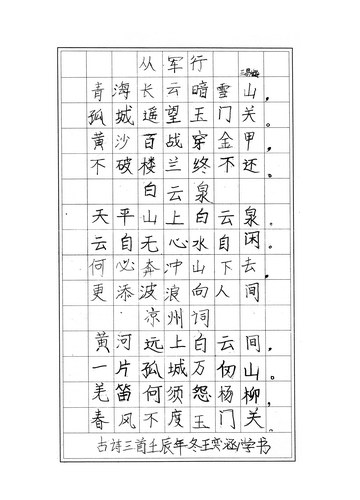 从军行
青海长云暗雪山，
孤城遥望玉门关。
黄沙百战穿金甲，
不破楼兰终不还。
白云泉
天平山上白云泉。
云自无心水自闲。
何必奔冲山下去，
更添波浪向人间
凉州词
黄河远上白云间，
一片孤城万仞山。
羌笛何须怨杨柳，
春风不度玉门关。
古诗三首壬辰年冬王奕涵学书